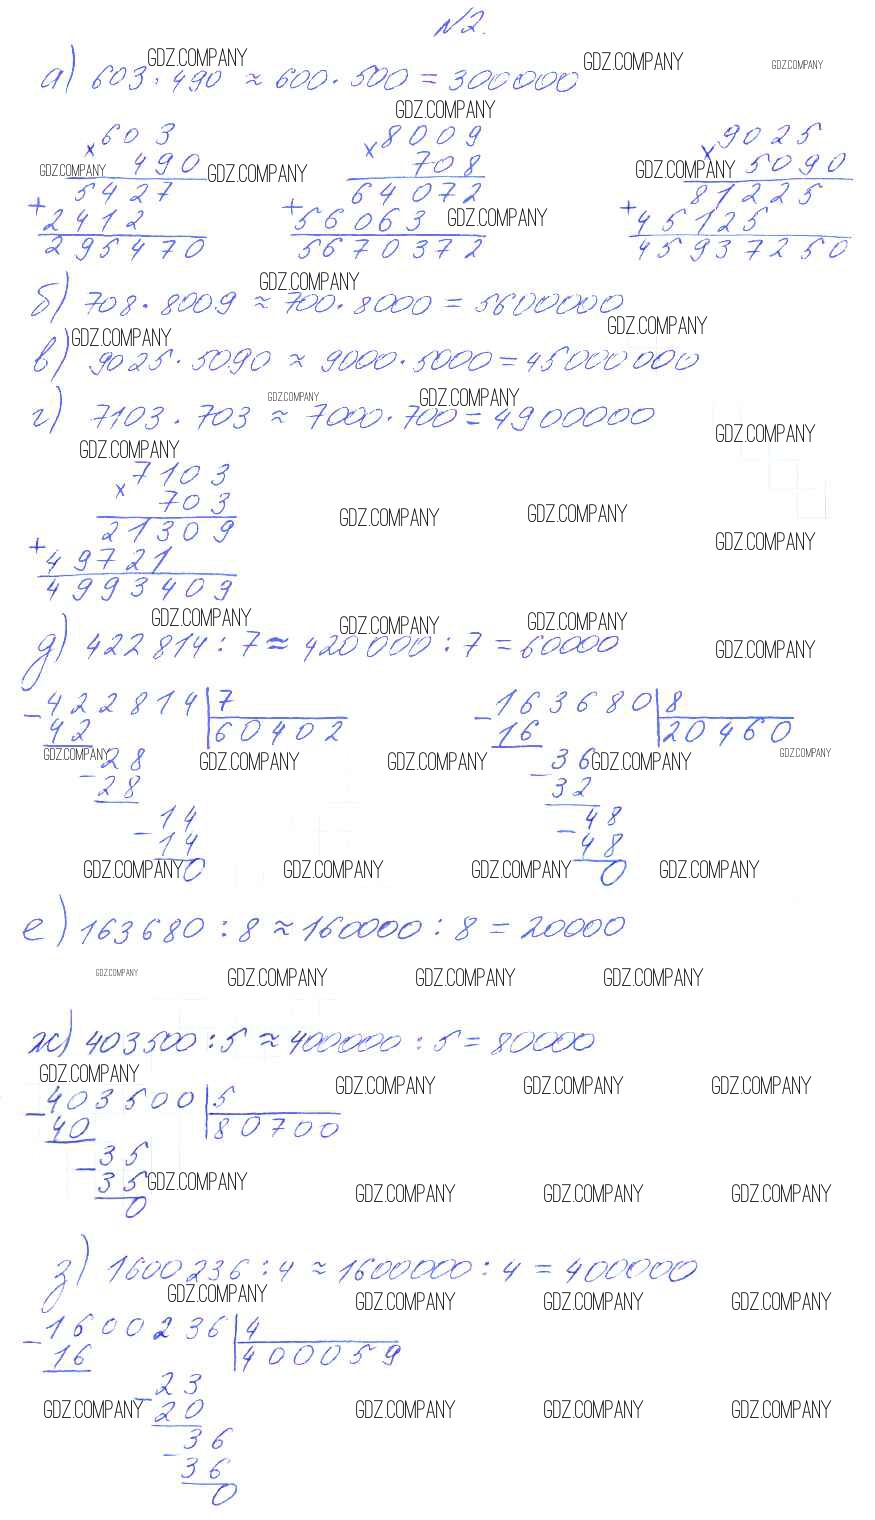 №2.
GDZ.COMPANY GDZ.COMPANY GDZ.COMPANY
а) 603 · 490 ≈ 600 · 500 = 300000
GDZ.COMPANY
× 603 × 8009 × 9025
490 708 5090
GDZ.COMPANY GDZ.COMPANY GDZ.COMPANY
5427 64072 81225
+ 2412 + 56063 GDZ.COMPANY + 45125
295470 5670372 45937250
GDZ.COMPANY
б) 708 · 8009 ≈ 700 · 8000 = 5600000
GDZ.COMPANY GDZ.COMPANY
в) 9025 · 5090 ≈ 9000 · 5000 = 45000000
GDZ.COMPANY GDZ.COMPANY
г) 7103 · 703 ≈ 7000 · 700 = 4900000
GDZ.COMPANY GDZ.COMPANY
× 7103
703
GDZ.COMPANY GDZ.COMPANY
21309
GDZ.COMPANY
+ 49721
4993409
GDZ.COMPANY GDZ.COMPANY GDZ.COMPANY
д) 422814 : 7 ≈ 420000 : 7 = 60000
GDZ.COMPANY
− 422814 | 7 − 163680 | 8
42 60402 16 20460
GDZ.COMPANY − 28 GDZ.COMPANY GDZ.COMPANY − 36 GDZ.COMPANY GDZ.COMPANY
28 32
− 14 − 48
14 48
GDZ.COMPANY 0 GDZ.COMPANY GDZ.COMPANY 0 GDZ.COMPANY
е) 163680 : 8 ≈ 160000 : 8 = 20000
GDZ.COMPANY GDZ.COMPANY GDZ.COMPANY GDZ.COMPANY
ж) 403500 : 5 ≈ 400000 : 5 = 80000
GDZ.COMPANY GDZ.COMPANY GDZ.COMPANY GDZ.COMPANY
− 403500 | 5
40 80700
− 35
35 GDZ.COMPANY GDZ.COMPANY GDZ.COMPANY GDZ.COMPANY
0
з) 1600236 : 4 ≈ 1600000 : 4 = 400000
GDZ.COMPANY GDZ.COMPANY GDZ.COMPANY GDZ.COMPANY
− 1600236 | 4
16 400059
− 23
GDZ.COMPANY 20 GDZ.COMPANY GDZ.COMPANY GDZ.COMPANY
− 36
36
0